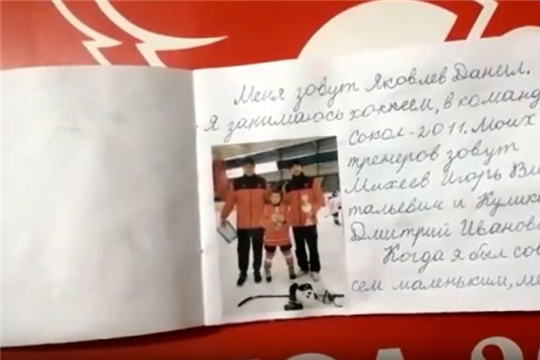 Меня зовут Яковлев Данил.
Я занимаюсь хоккеем, в команд
Сокол-2011. Моих
тренеров зовут
Михеев Игорь Ви
тальевич и Кулик
Дмитрий Иванов
Когда я был сов
сем маленьким, м